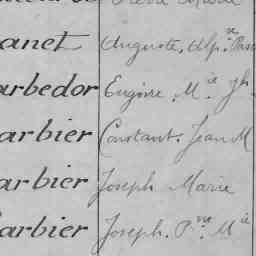 anet Auguste, Alp.
arbedor Eugène. M.ie Jh
arbier Constant. Jean M
arbier Joseph Marie
arbier Joseph. P.re M.ie